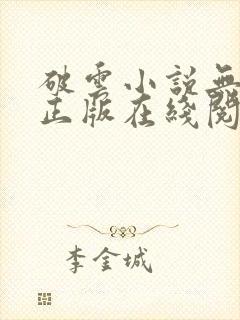 破雲小說無
正版在綫閱
李金城